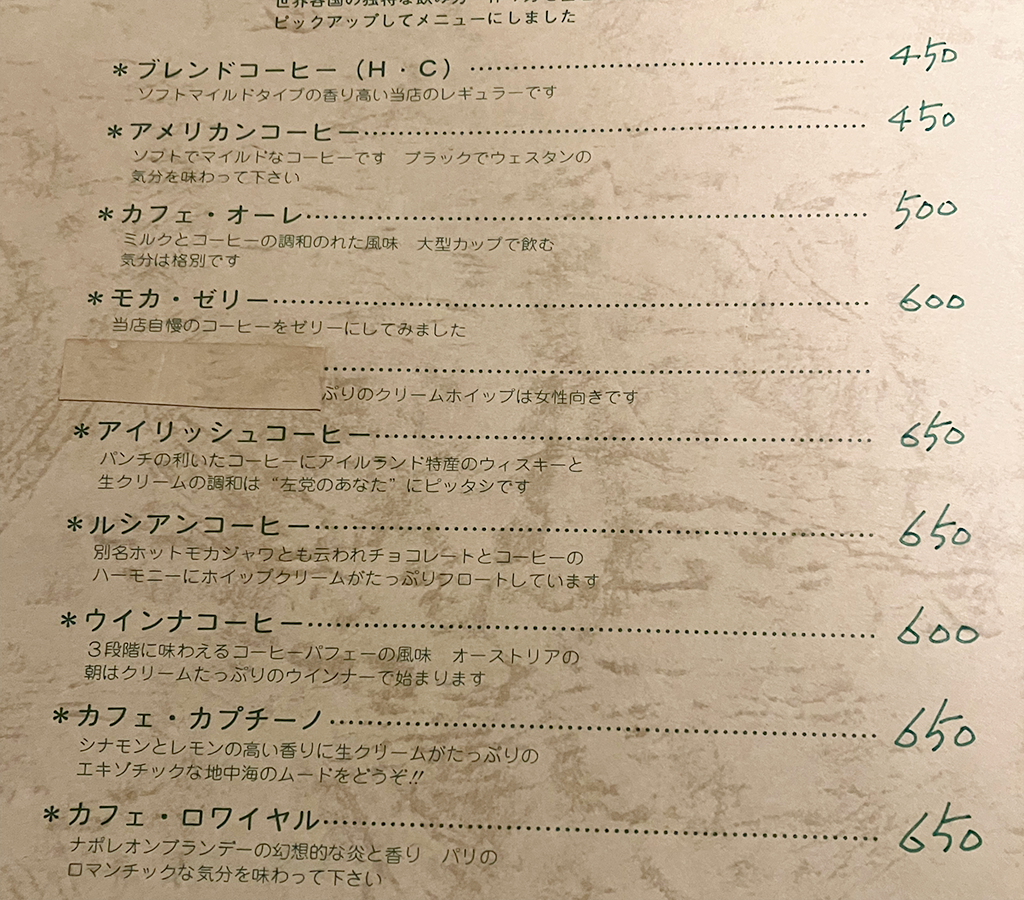 ピックアップしてメニューにしました
＊ブレンドコーヒー（H・C）…… 450
ソフトマイルドタイプの香り高い当店のレギュラーです
＊アメリカンコーヒー…… 450
ソフトでマイルドなコーヒーです　ブラックでウェスタンの
気分を味わって下さい
＊カフェ・オーレ…… 500
ミルクとコーヒーの調和のれた風味　大型カップで飲む
気分は格別です
＊モカ・ゼリー…… 600
当店自慢のコーヒーをゼリーにしてみました
ぷりのクリームホイップは女性向きです
＊アイリッシュコーヒー…… 650
パンチの利いたコーヒーにアイルランド特産のウィスキーと
生クリームの調和は“左党のあなた”にピッタシです
＊ルシアンコーヒー…… 650
別名ホットモカジャワとも云われチョコレートとコーヒーの
ハーモニーにホイップクリームがたっぷりフロートしています
＊ウインナコーヒー…… 600
３段階に味わえるコーヒーパフェーの風味　オーストリアの
朝はクリームたっぷりのウインナーで始まります
＊カフェ・カプチーノ…… 650
シナモンとレモンの高い香りに生クリームがたっぷりの
エキゾチックな地中海のムードをどうぞ!!
＊カフェ・ロワイヤル…… 650
ナポレオンブランデーの幻想的な炎と香り　パリの
ロマンチックな気分を味わって下さい